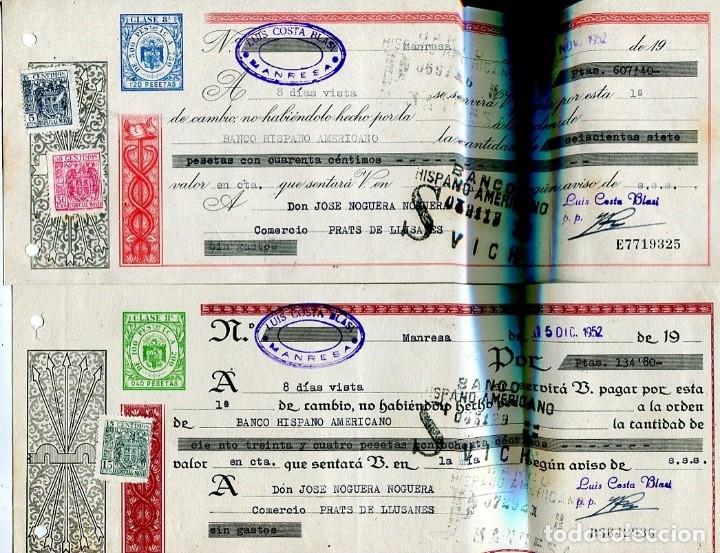 CLASE 8ª
1'20 PESETAS
LUIS COSTA BLASI
MANRESA
Manresa
NOV. 1952
de 19
Ptas. 607'40-
A 8 días vista se servirá V. por esta 1ª
de cambio, no habiéndolo hecho por la
BANCO HISPANO AMERICANO la cantidad de seiscientas siete
pesetas con cuarenta céntimos
valor en cta. que sentará V. en según aviso de s.s.s.
BANCO
HISPANO AMERICANO
VICH
S
A Don JOSE NOGUERA NOGUERA
Luis Costa Blasi
p. p.
Comercio PRATS DE LLUSANES
sin gastos
E7719325
5 CENTIMOS
50 CENTIMOS
CLASE 11ª
0'40 PESETAS
N.º
LUIS COSTA BLASI
MANRESA
Manresa
de 15 DIC. 1952 de 19
Por Ptas. 134'80-
A 8 días vista servirá V. pagar por esta
1ª de cambio, no habiéndolo hecho a la orden
de BANCO HISPANO AMERICANO la cantidad de
cie nto treinta y cuatro pesetas con ochenta céntimos
valor en cta. que sentará V. en la mía según aviso de s.s.s.
BANCO
HISPANO AMERICANO
VICH
S
A DON JOSE NOGUERA NOGUERA
Luis Costa Blasi
p. p.
Comercio PRATS DE LLUSANES
sin gastos
15
todocoleccion